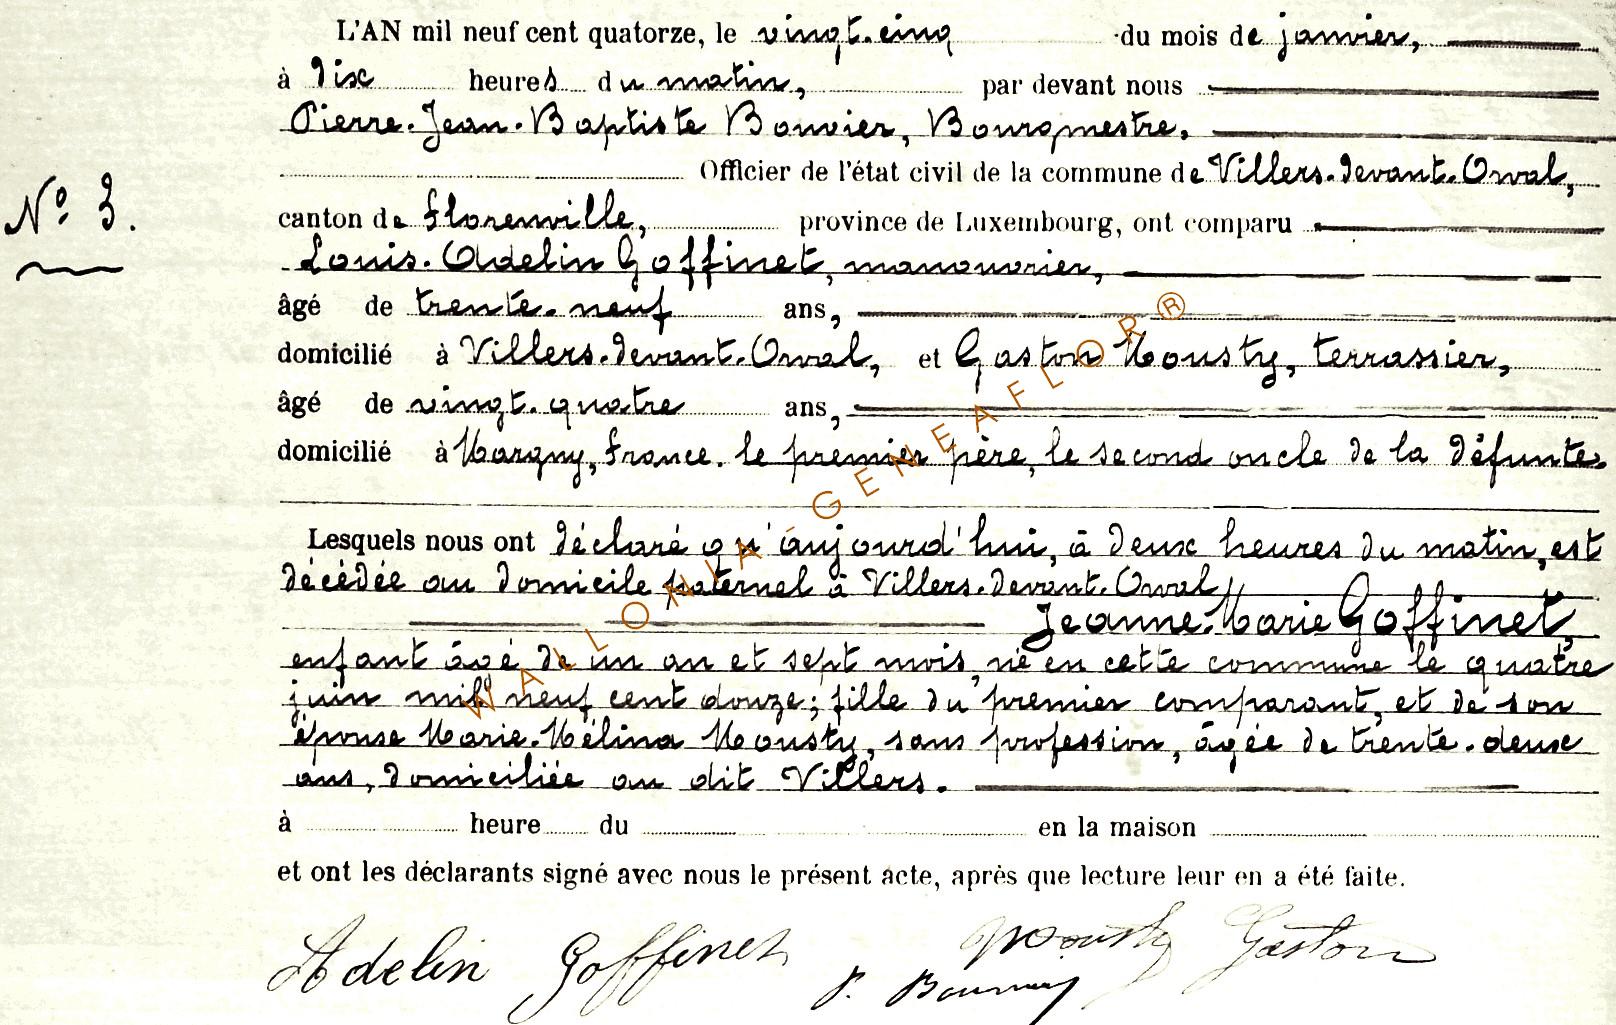 L'AN mil neuf cent quatorze, le vingt-cinq du mois de janvier,
à dix heures du matin, par devant nous
Pierre-Jean-Baptiste Bouvier, Bourgmestre,
Officier de l'état civil de la commune de Villers-devant-Orval,
N° 3.
canton de Florenville, province de Luxembourg, ont comparu
Louis-Adelin Goffinet, manouvrier,
âgé de trente-neuf ans,
domicilié à Villers-devant-Orval, et Gaston Mousty, terrassier,
âgé de vingt-quatre ans,
domicilié à Margny, France, le premier père, le second oncle de la défunte.
Lesquels nous ont déclaré qu'aujourd'hui, à deux heures du matin, est
décédée au domicile paternel à Villers-devant-Orval
Jeanne-Marie Goffinet,
enfant âgé de un an et sept mois, né en cette commune le quatre
juin mil neuf cent douze; fille du premier comparant, et de son
épouse Marie-Mélina Mousty, sans profession, âgée de trente-deux
ans, domiciliée au dit Villers.
à heure du en la maison
et ont les déclarants signé avec nous le présent acte, après que lecture leur en a été faite.
Adelin Goffinet Mousty Gaston
P. Bouvier
WALLONIA-GENEAFLOR®